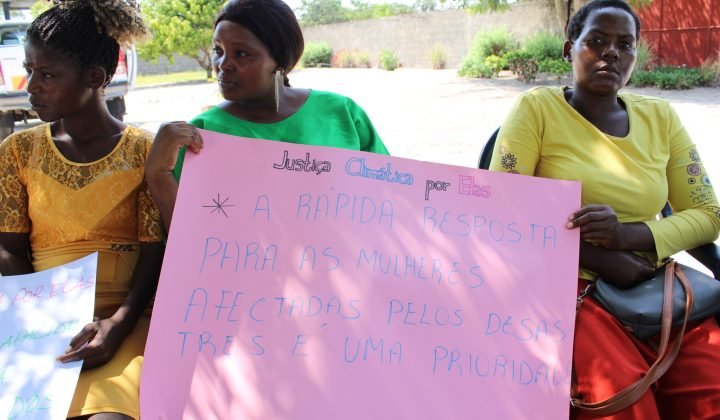 Justiça Climática por Elas
* A RÁPIDA RESPOSTA
PARA AS MULHERES
AFECTADAS PELOS DESAS
TRES É UMA PRIORIDADE
POR ELAS
DOS